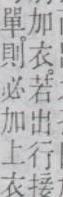 加衣。若出行接
單。則必加上衣